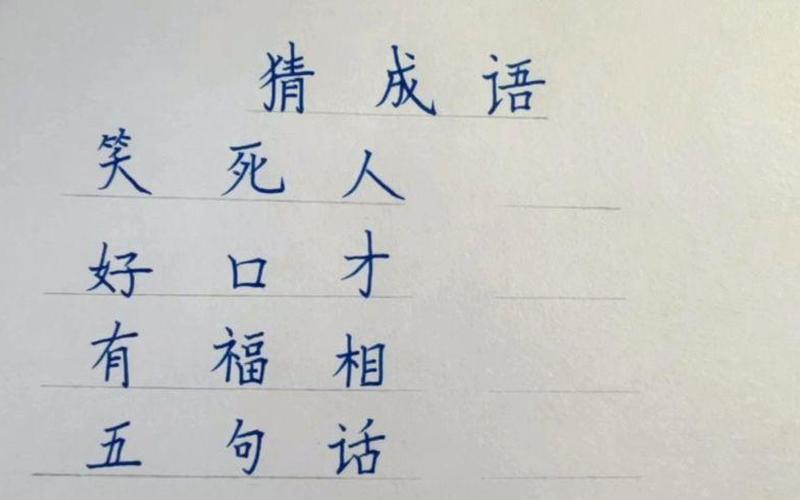 猜成语
笑死人
好口才
有福相
五句话